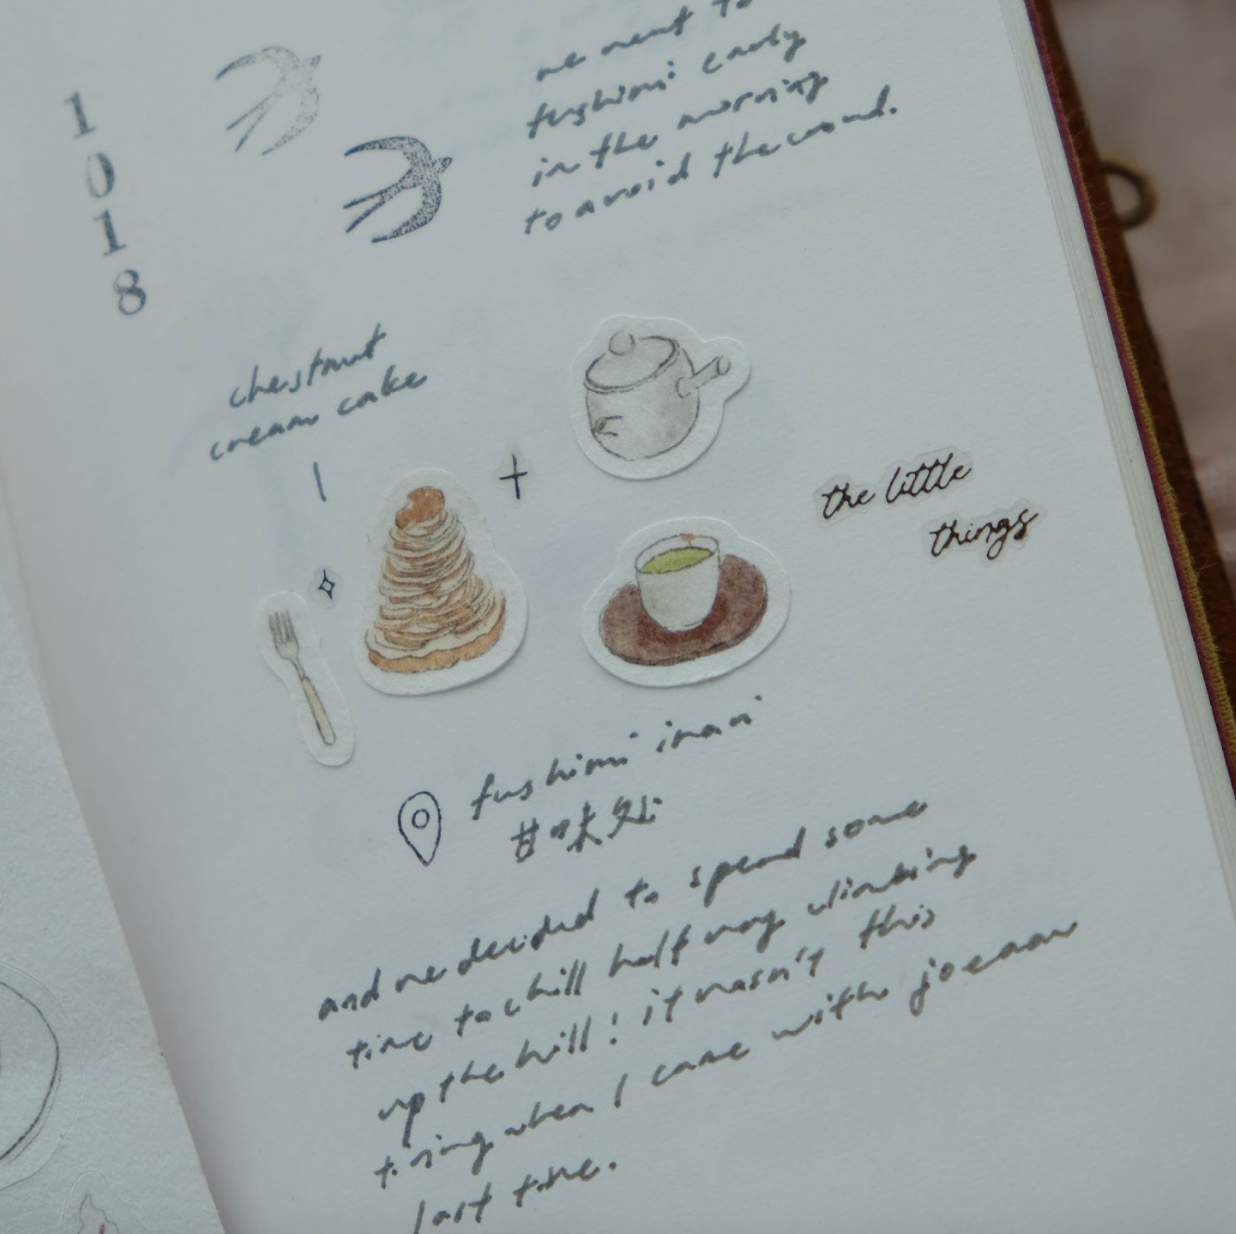 1
0
1
8
we went to
fushimi early
in the morning
to avoid the crowd.
chestnut
cream cake
the little
things
fushimi inari
#味处
and we decided to spend some
time to chill half way climbing
up the hill! it wasn't this
tiring when I came with joeann
last time.